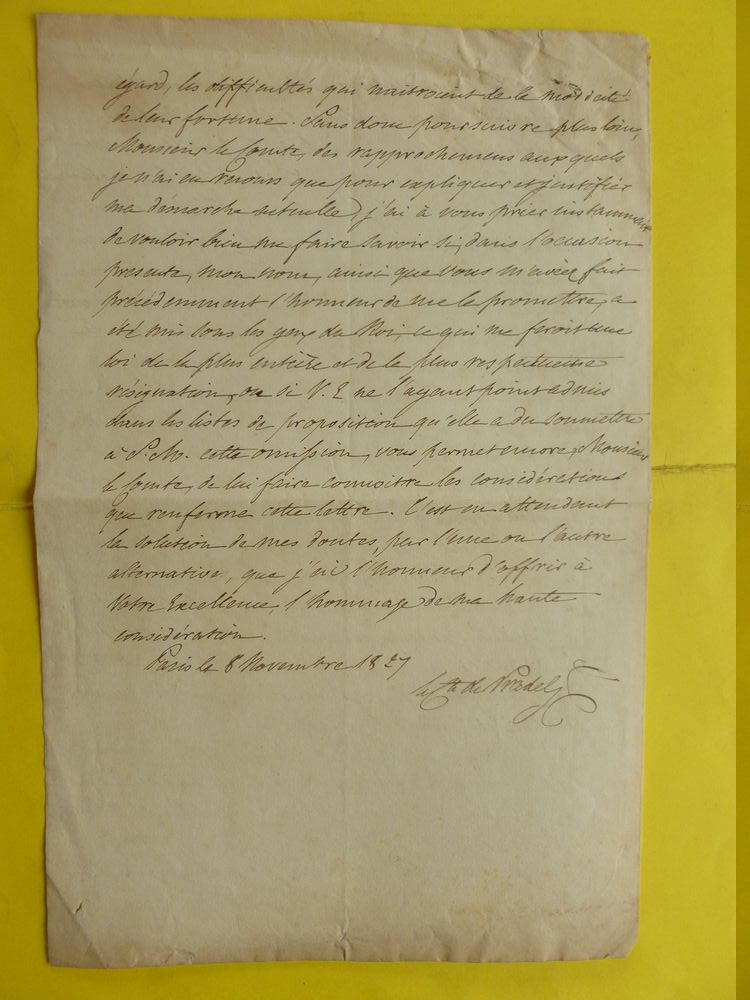 égard, les difficultés qui naitroient de la modicité
de leur fortune. Sans donc poursuivre plus loin,
Monsieur le Comte, des rapprochemens auxquels
je n'ai eu recours que pour expliquer et justifier
ma démarche actuelle, j'ai à vous prier instamment
de vouloir bien me faire savoir si, dans l'occasion
presente, mon nom, ainsi que vous m'aviez fait
précédemment l'honneur de me le promettre, a
été mis sous les yeux du Roi, ce qui me feroit une
loi de la plus entière et de la plus respectueuse
résignation, ou si V. E ne l'ayant point admis
dans les listes de proposition qu'elle a du soumettre
à S. M. cette omission, vous permet encore, Monsieur
le Comte, de lui faire connoitre les considérations
que renferme cette lettre. C'est en attendant
la solution de mes doutes, par l'une ou l'autre
alternative, que j'ai l'honneur d'offrir à
Votre Excellence, l'hommage de ma haute
considération.
Paris le 8 Novembre 1827
le Cte de Pradel